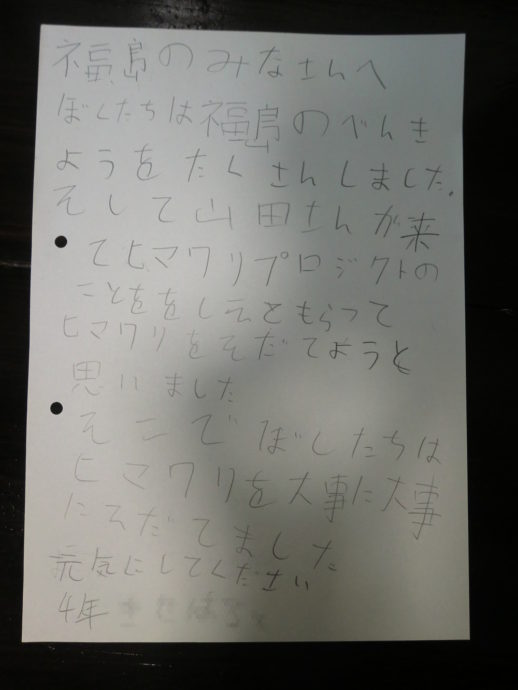 福島のみなさんへ
ぼくたちは福島のべんき
ようをたくさんしました。
そして山田さんが来
てヒマワリプロジクトの
ことををしえともらって
ヒマワリをそだてようと
思いました
そこでぼしたちは
ヒマワリを大事に大事
にそだてました
元気にしてください
4年